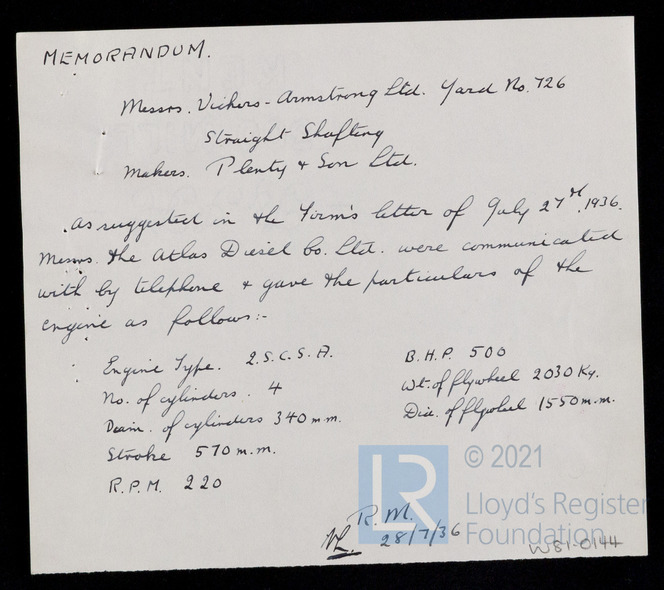 MEMORANDUM.
Messrs. Vickers-Armstrong Ltd. Yard No. 726
Straight Shafting
Makers. Plenty & Son Ltd.
As suggested in the Firm's letter of July 27th, 1936.
Messrs. the Atlas Diesel Co. Ltd. were communicated
with by telephone & gave the particulars of the
engine as follows:-
Engine Type. 2.S.C.S.A.
No. of cylinders. 4
Diam. of cylinders 340 m.m.
Stroke 570 m.m.
R.P.M. 220
B.H.P. 500
Wt. of flywheel 2030 Kg.
Dia. of flywheel 1550 m.m.
R.M.
28/7/36
LR
© 2021
Lloyd's Register
Foundation
W81-0144